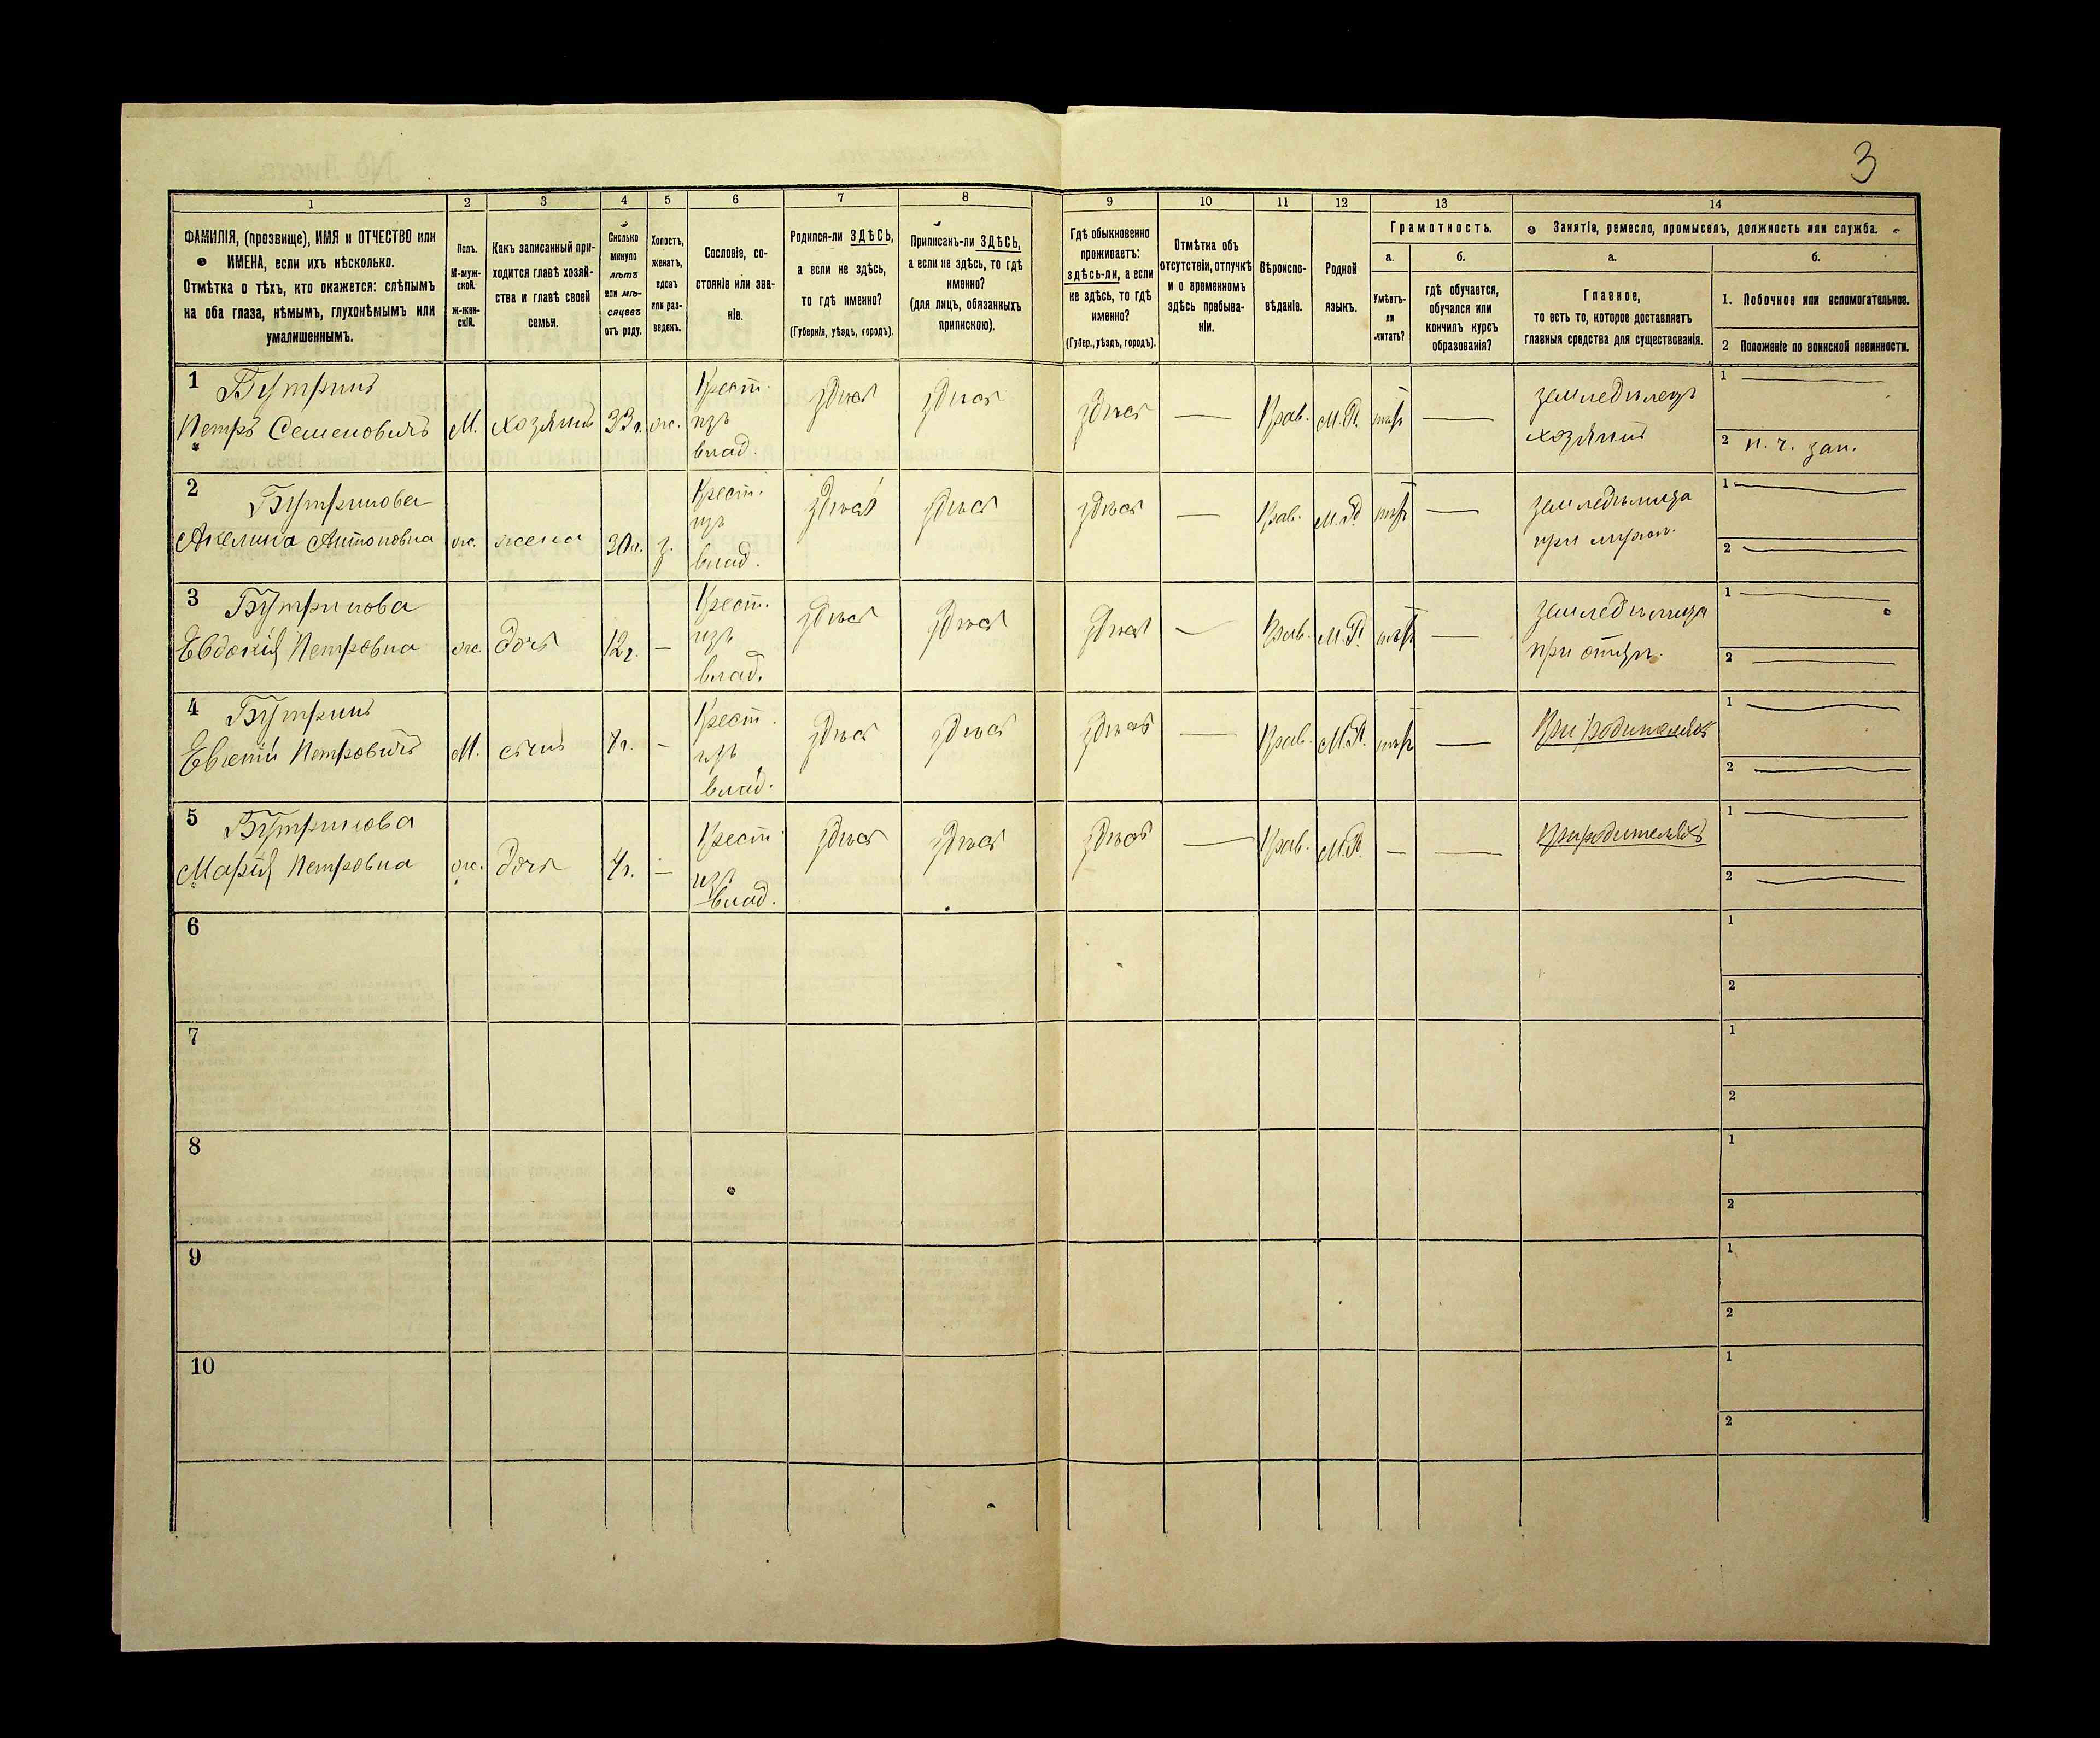 3
1 2 3 4 5 6 7 8 9 10 11 12 13 14
ФАМИЛІЯ, (прозвище), ИМЯ и ОТЧЕСТВО или
ИМЕНА, если ихъ нѣсколько.
Отмѣтка о тѣхъ, кто окажется: слѣпымъ
на оба глаза, нѣмымъ, глухонѣмымъ или
умалишеннымъ.
Полъ.
М-муж-
ской.
Ж-жен-
скій.
Какъ записанный при-
ходится главѣ хозяй-
ства и главѣ своей
семьи.
Сколько
минуло
лѣтъ
или мѣ-
сяцевъ
отъ роду.
Холостъ,
женатъ,
вдовъ
или раз-
веденъ.
Сословіе, со-
стояніе или зва-
ніе.
Родился-ли ЗДѢСЬ,
а если не здѣсь,
то гдѣ именно?
(Губернія, уѣздъ, городъ).
Приписанъ-ли ЗДѢСЬ,
а если не здѣсь, то гдѣ
именно?
(для лицъ, обязанныхъ
припискою).
Гдѣ обыкновенно
проживаетъ:
здѣсь-ли, а если
не здѣсь, то гдѣ
именно?
(Губер., уѣздъ, городъ).
Отмѣтка объ
отсутствіи, отлучкѣ
и о временномъ
здѣсь пребыва-
ніи.
Вѣроиспо-
вѣданіе.
Родной
языкъ.
Грамотность.
а.
Умѣетъ-
ли
читать?
б.
гдѣ обучается,
обучался или
кончилъ курсъ
образованія?
Занятія, ремесло, промыселъ, должность или служба.
а.
Главное,
то есть то, которое доставляетъ
главныя средства для существованія.
б.
1. Побочное или вспомогательное.
2 Положеніе по воинской повинности.
1 Бутринъ
Петръ Семеновичъ М. хозяинъ 33 г. ж.
Крест.
изъ
влад.
здѣсь здѣсь здѣсь — Прав. М.Р. нѣтъ —
земледѣлецъ
хозяинъ
1 —
2 н. ч. зап.
2 Бутринова
Акелина Антоновна ж. жена 30 л. з.
Крест.
изъ
влад.
здѣсь здѣсь здѣсь — Прав. М.Р. нѣтъ —
земледѣлица
при мужѣ.
1 —
2 —
3 Бутринова
Евдокія Петровна ж. дочь 12 г. —
Крест.
изъ
влад.
здѣсь здѣсь здѣсь — Прав. М.Р. нѣтъ —
земледѣлица
при отцѣ.
1 —
2 —
4 Бутринъ
Петровичъ М. сынъ —
Крест.
изъ
влад.
здѣсь здѣсь здѣсь — Прав. М.Р. нѣтъ —
При родителяхъ
1 —
2 —
5 Бутринова
Марія Петровна ж. дочь —
Крест.
изъ
влад.
здѣсь здѣсь здѣсь — Прав. М.Р. — —
При родителяхъ
1 —
2 —
6
1
2
7
1
2
8
1
2
9
1
2
10
1
2